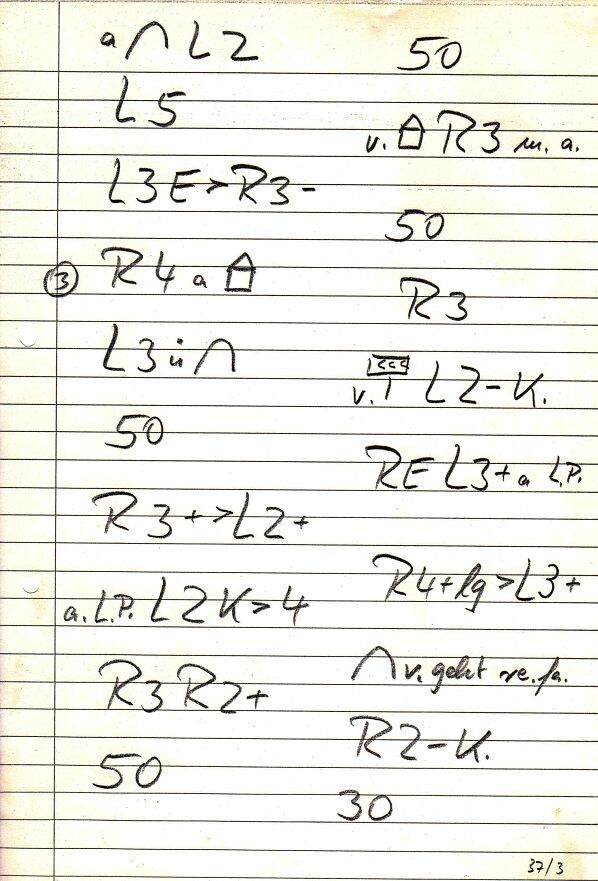 a ∩ L2
L5
L3 E > R3 -
③ R4 a
L3 ü ∩
50
R3+ > L2+
a. L.P. L2 K > 4
R3 R2+
50
50
v. R3 m. a.
50
R3
v. <<< L2 - K.
RE L3+ a L.P.
R4+ lg > L3+
∩ v. geht re. fa.
R2 - K.
30
37/3